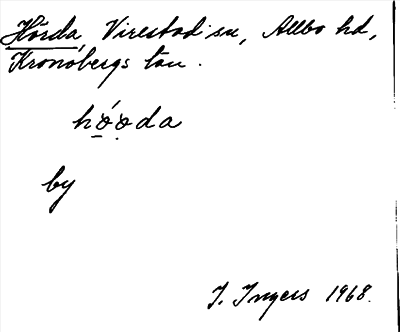 Hörda, Virestad sn, Allbo hd,
Kronobergs län.
hǿọda
by
I. Ingers 1968.